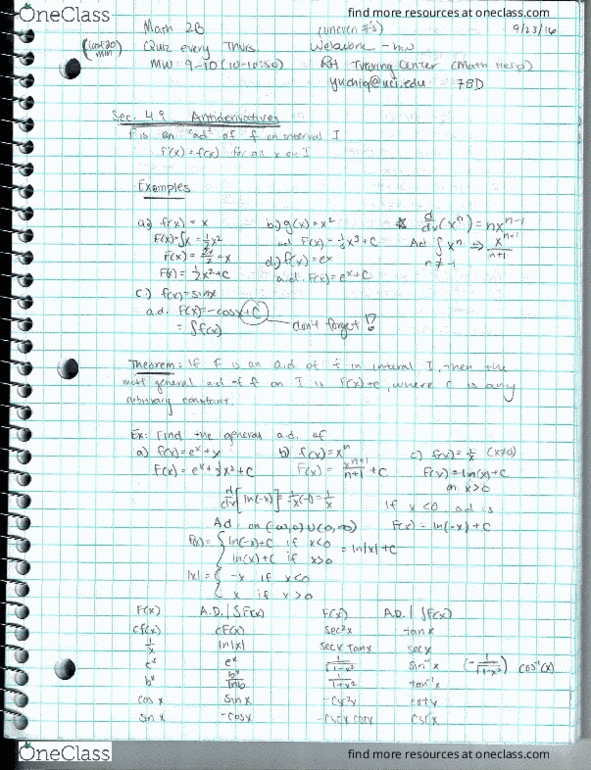 OneClass
find more resources at oneclass.com
Math 2B (uneven #'s) 9/23/16
(last 20 min) Quiz every Thurs. Webwork - hw
MW 9-10 (10-10:50) RH Tutoring Center (Math help)
yuchiq@uci.edu 78D
Sec. 4.9 Antiderivatives
F is an "ad" of f on interval I
F'(x) = f(x) for all x on I
Examples
a) f(x) = x b) g(x) = x² * d/dx (xⁿ) = nxⁿ⁻¹
F(x) = ∫x = ½x² ad F(x) = ⅓x³ + C Ad ∫xⁿ ⇒ xⁿ⁺¹/n+1
F(x) = 2x/2 = x d) f(x) = eˣ n ≠ -1
F(x) = ½x² + C a.d. F(x) = eˣ + C
c) f(x) = sinx
a.d. F(x) = -cosx + C
= ∫f(x) don't forget!?
Theorem: If F is an a.d. of f in interval I, then the
most general a.d of f on I is F(x)+c, where c is any
arbitrary constant.
Ex: Find the general a.d. of
a) f(x) = eˣ + x b) f(x) = xⁿ c) f(x) = 1/x (x>0)
F(x) = eˣ + ½x² + C F(x) = xⁿ⁺¹/n+1 + C F(x) = ln(x) + C
on x>0
d/dx [ln(-x)] = 1/-x (-1) = 1/x if x<0, ad is
Ad on (-∞,0)∪(0,∞) F(x) = ln(-x) + C
F(x) = { ln(-x)+C if x<0
ln(x)+C if x>0 = ln|x| + C
|x| = { -x if x<0
x if x>0
F(x) A.D. | ∫F(x) F(x) A.D. | ∫F(x)
cf(x) cF(x) sec²x tanx
1/x ln|x| secx tanx secx
eˣ eˣ 1/√1-x² sin⁻¹x (-1/√1-x²) cos⁻¹(x)
bˣ bˣ/lnb 1/1+x² tan⁻¹x
cos x sin x -csc²x cotx
sin x -cosx -cscx cotx cscx
OneClass
find more resources at oneclass.com